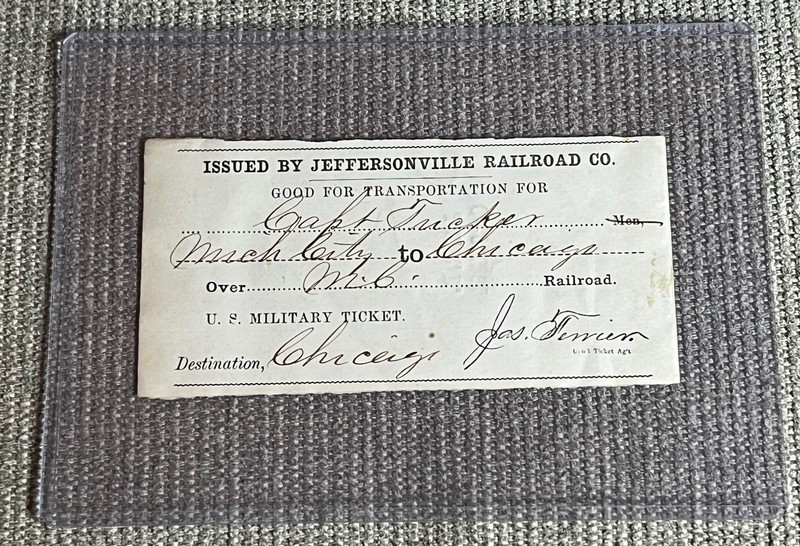 ISSUED BY JEFFERSONVILLE RAILROAD CO.
GOOD FOR TRANSPORTATION FOR
Capt Tucker Men,
Mich City to Chicago
Over M.C. Railroad.
U. S. MILITARY TICKET.
Jas. Ferrier
Gen'l Ticket Ag't
Destination, Chicago